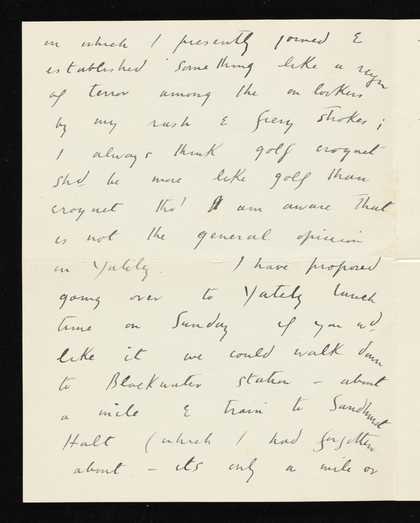 in which I presently joined &
established something like a reign
of terror among the onlookers
by my rash & fiery strokes ;
I always think golf croquet
shd. be more like golf than
croquet tho' I am aware that
is not the general opinion
in Yately. I have proposed
going over to Yately lunch
time on Sunday if you wd.
like it we could walk down
to Blackwater station – about
a mile & train to Sandhurst
Halt (which I had forgotten
about – its only a mile or